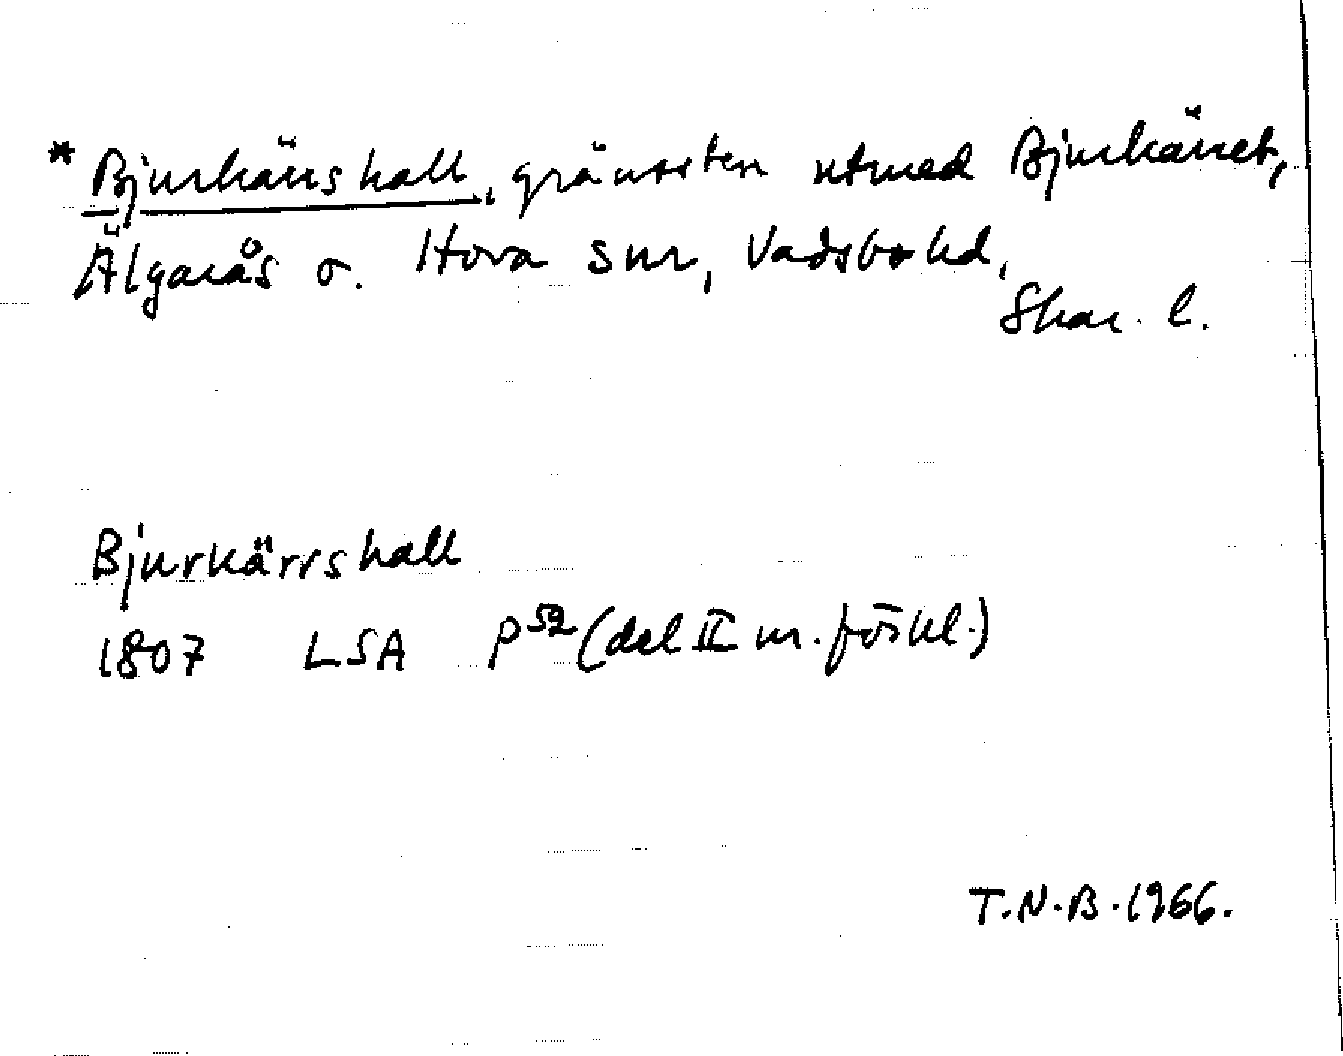 * Bjurkärrshall, gränssten utmed Bjurkärret,
Älgarås o. Hova snr, Vadsbo hd,
Skar. l.
Bjurkärrshall
1807 LSA P⁵² (del II m. förkl.)
T.N.B. 1966.